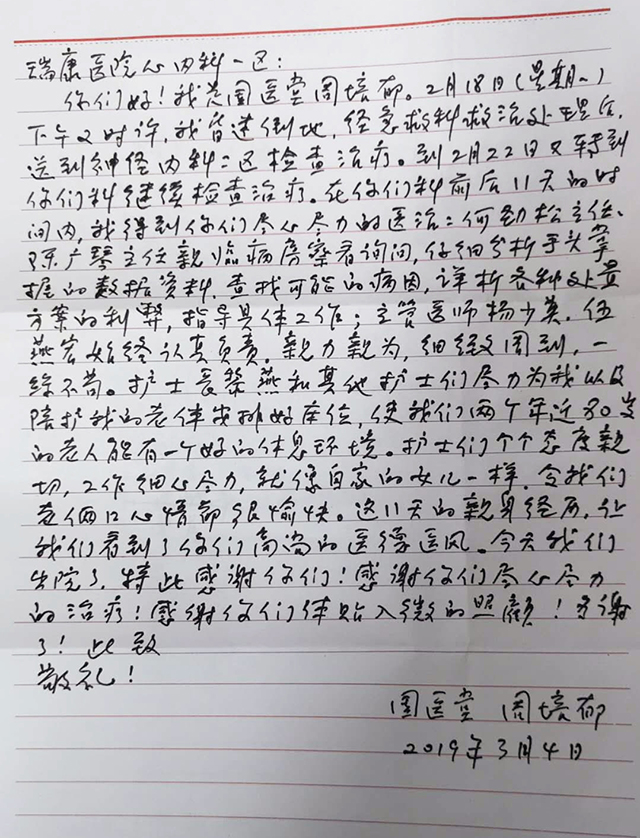 瑞康医院心内科一区:
你们好!我是国医堂周培郁。2月18日(星期一)
下午2时许,我昏迷倒地,经急救科救治处理后,
送到神经内科二区检查治疗。到2月22日又转到
你们科继续检查治疗。在你们科前后11天的时
间内,我得到你们尽心尽力的医治:何劲松主任、
陈广琴主任亲临病房察看询问,仔细分析手头掌
握的数据资料,查找可能的病因,详析各种处置
方案的利弊,指导具体工作;主管医师杨少英、伍
燕宏始终认真负责,亲力亲为,细致周到,一
丝不苟。护士长黎燕和其他护士们尽力为我以及
陪护我的老伴安排好床位,使我们两个年近80岁
的老人能有一个好的休息环境。护士们个个态度亲
切,工作细心尽力,就像自家的女儿一样,令我们
老俩口心情都很愉快。这11天的亲身经历,让
我们看到了你们高尚的医德医风。今天我们
出院了,特此感谢你们!感谢你们尽心尽力
的治疗!感谢你们体贴入微的照顾!多谢
了!此致
敬礼!
国医堂 周培郁
2019年3月4日